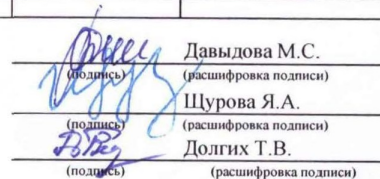 Давыдова М.С.
(подпись) (расшифровка подписи)
Щурова Я.А.
(подпись) (расшифровка подписи)
Долгих Т.В.
(подпись) (расшифровка подписи)